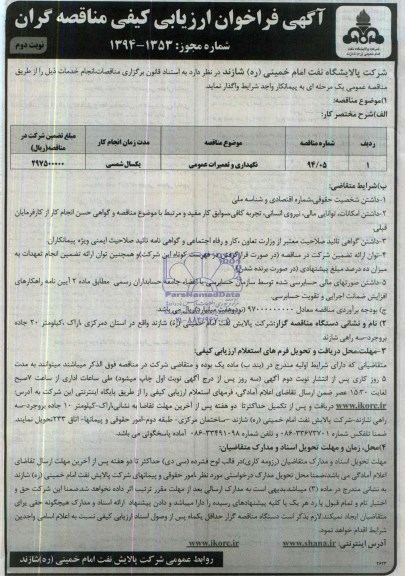 آگهی فراخوان ارزیابی کیفی مناقصه گران
شماره مجوز: ۱۳۵۳-۱۳۹۴
نوبت دوم
شرکت پالایشگاه نفت امام خمینی (ره) شازند در نظر دارد به استناد قانون برگزاری مناقصات،انجام خدمات ذیل را از طریق
مناقصه عمومی یک مرحله ای به پیمانکار واجد شرایط واگذار نماید.
۱)موضوع مناقصه:
الف)شرح مختصر کار:
ردیف شماره مناقصه موضوع مناقصه مدت زمان انجام کار مبلغ تضمین شرکت در مناقصه(ریال)
۱ ۹۴/۰۵ نگهداری و تعمیرات عمومی یکسال شمسی ۲۹۷۵۰۰۰۰۰
ب)شرایط متقاضی:
۱-داشتن شخصیت حقوقی،شماره اقتصادی و شناسه ملی
۲-داشتن امکانات، توانایی مالی، نیروی انسانی، تجربه کافی،سوابق کار مفید و مرتبط با موضوع مناقصه و گواهی حسن انجام کار از کارفرمایان
قبلی
۳-داشتن گواهی تائید صلاحیت معتبر از وزارت تعاون ،کار و رفاه اجتماعی و گواهی نامه تائید صلاحیت ایمنی ویژه پیمانکاران.
۴-توان ارائه تضمین شرکت در مناقصه (در صورت قرارگرفتن در فهرست کوتاه این شرکت)و همچنین توان ارائه تضمین انجام تعهدات به
میزان ده درصد مبلغ پیشنهادی (در صورت برنده شدن)
۵-داشتن صورتهای مالی حسابرسی شده توسط سازمان حسابرسی یا اعضاء جامعه حسابداران رسمی مطابق ماده ۲ آیین نامه راهکارهای
افزایش ضمانت اجرایی و تقویت حسابرسی.
ج) بودجه برآوردی مناقصه معادل
۲) نام و نشانی دستگاه مناقصه گزار:شرکت پالایش نفت امام خمینی (ره) شازند واقع در استان مرکزی ،اراک ،کیلومتر ۲۰ جاده
بروجرد-سه راهی شازند
۳ -مهلت،محل دریافت و تحویل فرم های استعلام ارزیابی کیفی:
متقاضیانی که دارای شرایط اولیه مندرج در (بند ب) ماده یک بوده و متقاضی شرکت در مناقصه فوق الذکر میباشند میتوانند به مدت
۵ روز کاری پس از انتشار نوبت دوم آگهی (سه روز پس از درج آگهی نوبت اول چاپ میشود) طی ساعات اداری از ساعت ۷صبح
لغایت ۱۵:۳۰ عصر ضمن ارسال تقاضای اعلام آمادگی، فرمهای استعلام ارزیابی کیفی را از طریق پایگاه اینترنتی این شرکت به آدرس:
www.ikorc.ir دریافت و پس از تکمیل حداکثرتا دو هفته پس از آخرین مهلت تقاضا به نشانی:اراک-کیلومتر ۲۰ جاده بروجرد-سه
راهی شازند-شرکت پالایش نفت امام خمینی (ره) شازند -ساختمان مرکزی- طبقه دوم-امور حقوقی و پیمانها- اتاق ۲۳۳تحویل نمایند.
ضمنا تلفکس شماره ۳۳۶۷۳۷۰۱-۰۸۶ و تلفن شماره ۳۳۴۹۱۰۹۸-۰۸۶ آماده پاسخگوئی می باشد.
۴)محل، زمان و مهلت تحویل اسناد و مدارک متقاضیان:
مهلت تحویل اسناد و مدارک متقاضیان (رزومه کاری)در قالب لوح فشرده (سی دی) حداکثر تا دو هفته پس از آخرین مهلت ارسال تقاضای
اعلام آمادگی می باشد،ضمنا محل تحویل مدارک درخواستی مورد نظر امور حقوقی و پیمانهای شرکت پالایش نفت امام خمینی (ره) شازند
به نشانی مندرج در ماده (۳) میباشد،بدیهی است به مدارک ارسالی بعد از مهلت مقرر ترتیب اثر داده نخواهد شد،ضمنا این شرکت حق و
اختیار تام و تمام قبول یا رد هر یک یا کلیه پیشنهادهای رسیده را دارا میباشد و دادن پیشنهاد ارائه اسناد و مدارک هیچگونه حقی برای
متقاضیان ایجاد نمیکند،لازم بذکر است دستگاه مناقصه گزار حداقل یکماه پس از وصول اسناد ارزیابی کیفی نسبت به اعلام اسامی واجدین
شرایط اقدام خواهد نمود.
آدرس اینترنتی: www.shana.ir www.ikorc.ir
روابط عمومی شرکت پالایش نفت امام خمینی (ره)شازند
ParsNamadData